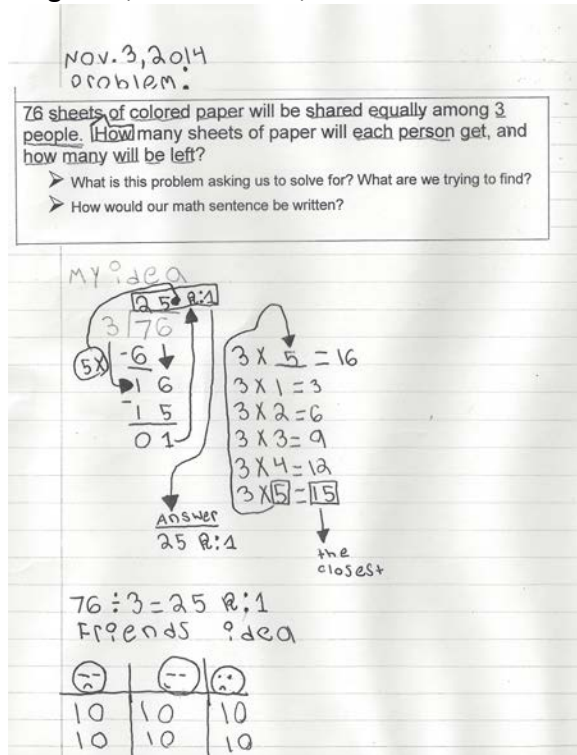 Nov. 3, 2014
problem:
76 sheets of colored paper will be shared equally among 3
people. How many sheets of paper will each person get, and
how many will be left?
➢ What is this problem asking us to solve for? What are we trying to find?
➢ How would our math sentence be written?
My idea
25 R:1
3 76
5x -6
16
-15
01
Answer
25 R:1
3 x 5 = 16
3 x 1 = 3
3 x 2 = 6
3 x 3 = 9
3 x 4 = 12
3 x 5 = 15
the
closest
76 ÷ 3 = 25 R:1
Friends idea
10 10 10
10 10 10